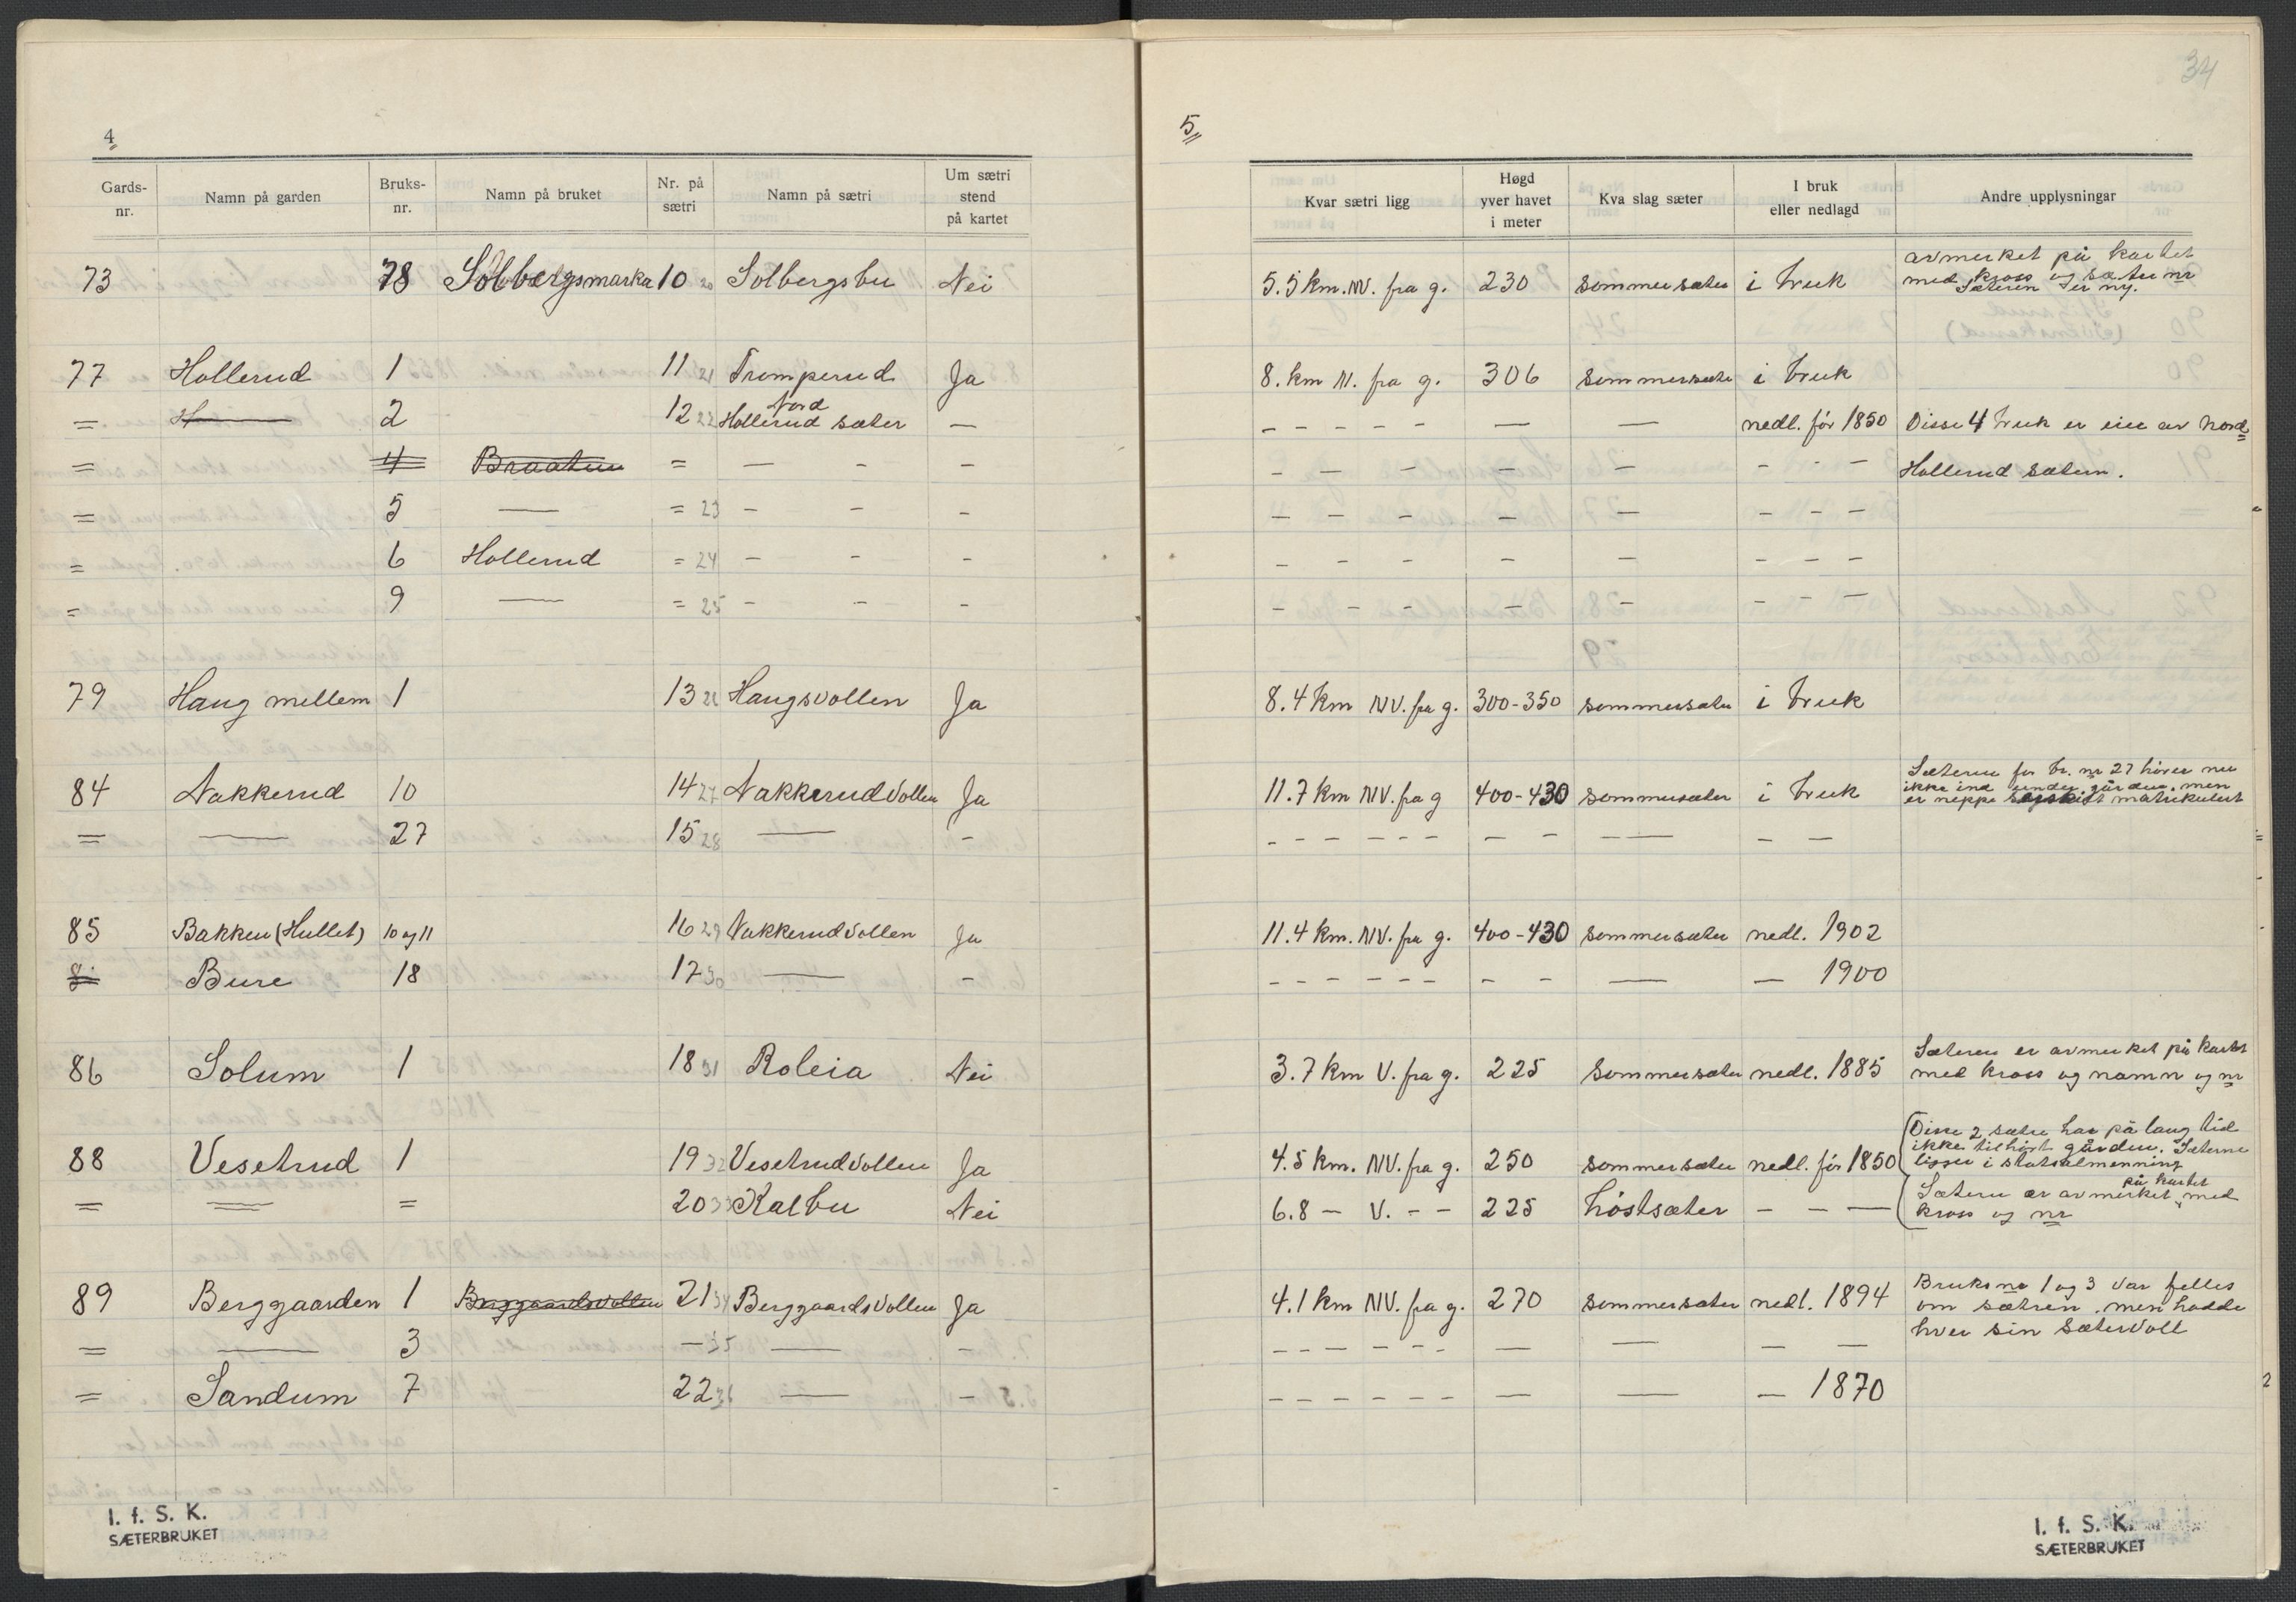 34
4
5
Gards-nr. Namn på garden Bruks-nr. Namn på bruket Nr. på sætri Namn på sætri Um sætri stend på kartet Kvar sætri ligg Høgd yver havet i meter Kva slag sæter I bruk eller nedlagd Andre upplysningar
73 78 Solbergsmarka 10 20 Solbergsbu Nei 5.5 km. NV. fra g. 230 sommersæter i bruk avmerket på kartet
med kross og sæter nr
Sæteren er ny.
77 Hollerud 1 11 21 Tromperud Ja 8. km N. fra g. 306 sommersæter i bruk
= H— 2 12 22 Nord Hollerud sæter — - - - - - — — nedl. før 1850 Disse 4 bruk er eier av Nord=
= 4 Braaten = — - - - — - - — - - - Hollerud sæteren.
= 5 — = 23 - - - — - - - — — - - -
= 6 Hollerud = 24 - - - - - - - - — - - -
= 9 — = 25 - - - - - - - - — - - -
79 Haug mellem 1 13 26 Haugsvollen Ja 8.4 km NV. fra g. 300-350 sommersæter i bruk
84 Nakkerud 10 14 27 Nakkerudvollen Ja 11.7 km NV. fra g 400-430 sommersæter i bruk Sæteren for br. nr 27 hører nu
ikke ind under gården, men
er neppe særskilt matrikulert
= — 27 15 28 — - - - - - - - — - — — —
85 Bakken (Hullet) 10 og 11 16 29 Nakkerudvollen Ja 11.4 km. NV. fra g. 400-430 sommersæter nedl. 1902
8- Bure 18 17 30 — - - - - - - - - - — — 1900
86 Solum 1 18 31 Roleia Nei 3.7 km V. fra g. 225 sommersæter nedl. 1885 Sæteren er avmerket på kartet
med kross og namn og nr
88 Vesetrud 1 19 32 Vesetrudvollen Ja 4.5 km. NV. fra g. 250 sommersæter nedl. før 1850 Disse 2 sætre har på lang tid
ikke tilhørt gården. Sæterne
ligger i statsalmenning
= — = 20 33 Kalbu Nei 6.8 — V. - - 225 høstsæter - - — Sæteren er avmerket på kartet med
kross og nr
89 Berggaarden 1 Berggaardsvollen 21 34 Berggaardsvollen Ja 4.1 km NV. fra g. 270 sommersæter nedl. 1894 Bruksnr 1 og 3 var felles
om sætren, men hadde
hver sin sætervoll
= — 3 — 35 — - - - — - - - — — — —
= Sandum 7 22 36 — - - - - - - - — — — 1870
I. f. S. K.
SÆTERBRUKET
I. f. S. K.
SÆTERBRUKET